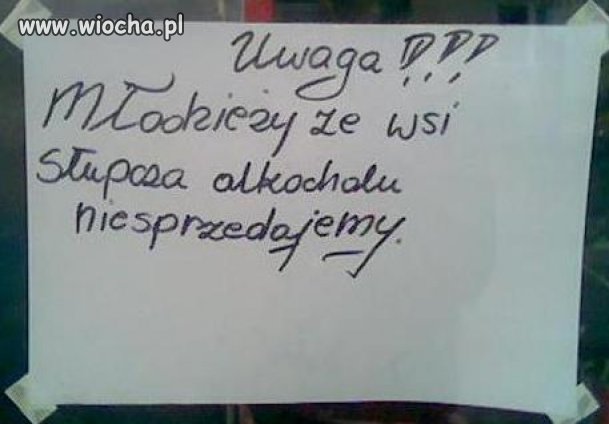 www.wiocha.pl
Uwaga !!!
Młodzieży ze wsi
Słupcza alkocholu
niesprzedajemy.